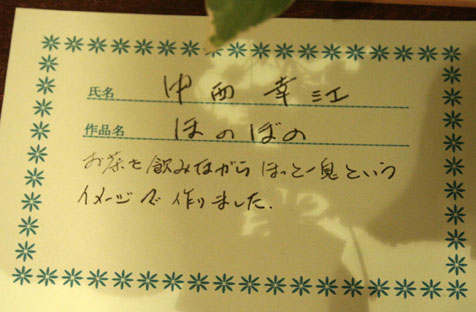 氏名 中西幸江
作品名 ほのぼの
お茶を飲みながらほっと一息という
イメージで作りました.